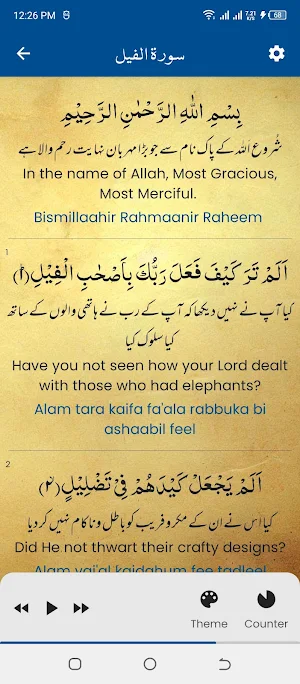 12:26 PM
7.21 K/s
68
سورة الفيل
بِسْمِ اللّٰهِ الرَّحْمٰنِ الرَّحِيْمِ
شُروع اللہ کے پاک نام سے جو بڑا مہربان نہایت رحم والا ہے
In the name of Allah, Most Gracious,
Most Merciful.
Bismillaahir Rahmaanir Raheem
1
اَلَمْ تَرَ كَيْفَ فَعَلَ رَبُّكَ بِاَصْحٰبِ الْفِيْلِ(۱)
کیا آپ نے نہیں دیکھا کہ آپ کے رب نے ہاتھی والوں کے ساتھ
کیا سلوک کیا
Have you not seen how your Lord dealt
with those who had elephants?
Alam tara kaifa fa'ala rabbuka bi
ashaabil feel
2
اَلَمْ يَجْعَلْ كَيْدَهُمْ فِيْ تَضْلِيْلٍ(۲)
کیا اس نے ان کے مکر و فریب کو باطل و ناکام نہیں کر دیا
Did He not thwart their crafty designs?
Alam yaj'al kaidahum fee tadleel
Theme
Counter